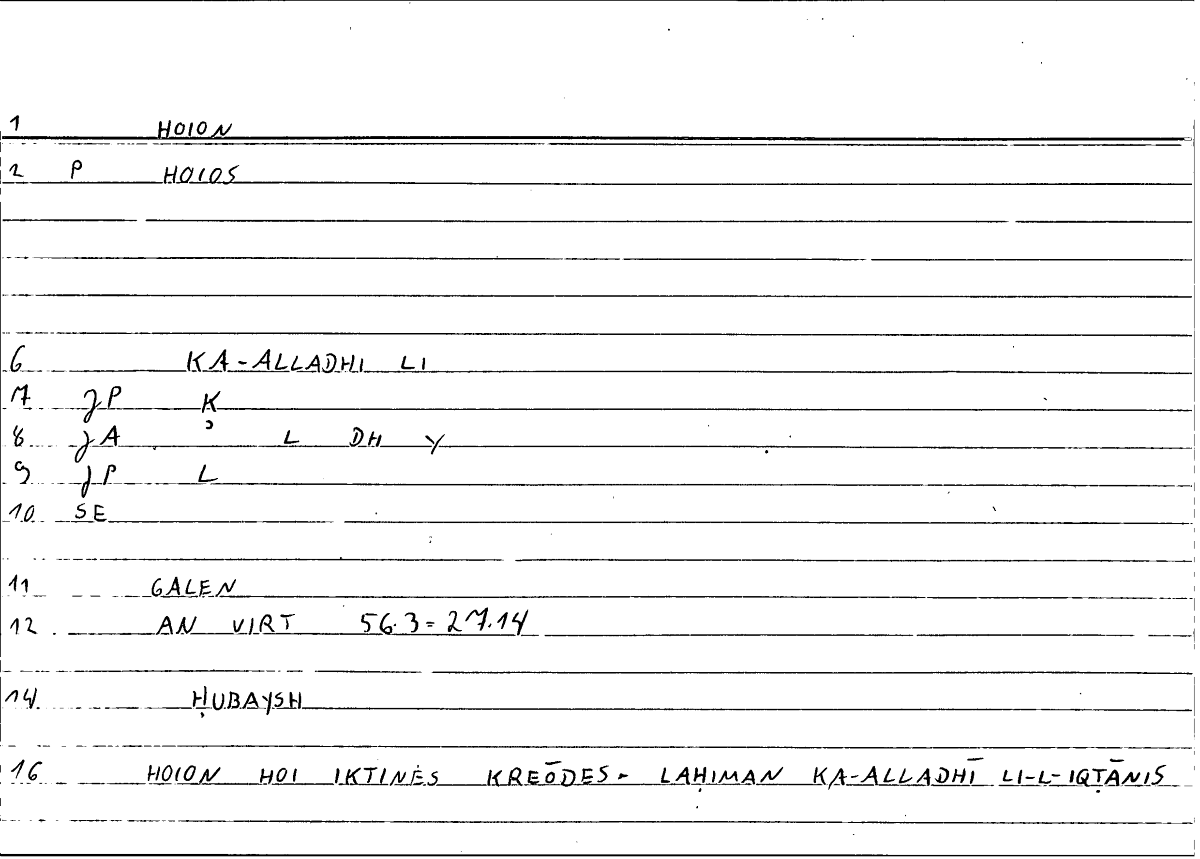 1 HOION
2 P HOIOS
6 KA-ALLADHI LI
7 JP K
8 JA ʾ L DH Y
9 JP L
10 SE
11 GALEN
12 AN VIRT 56.3=27.14
14 ḤUBAYSH
16 HOION HOI IKTINES KREŌDES- LAḤIMAN KA-ALLADHĪ LI-L-IQṬĀNIS